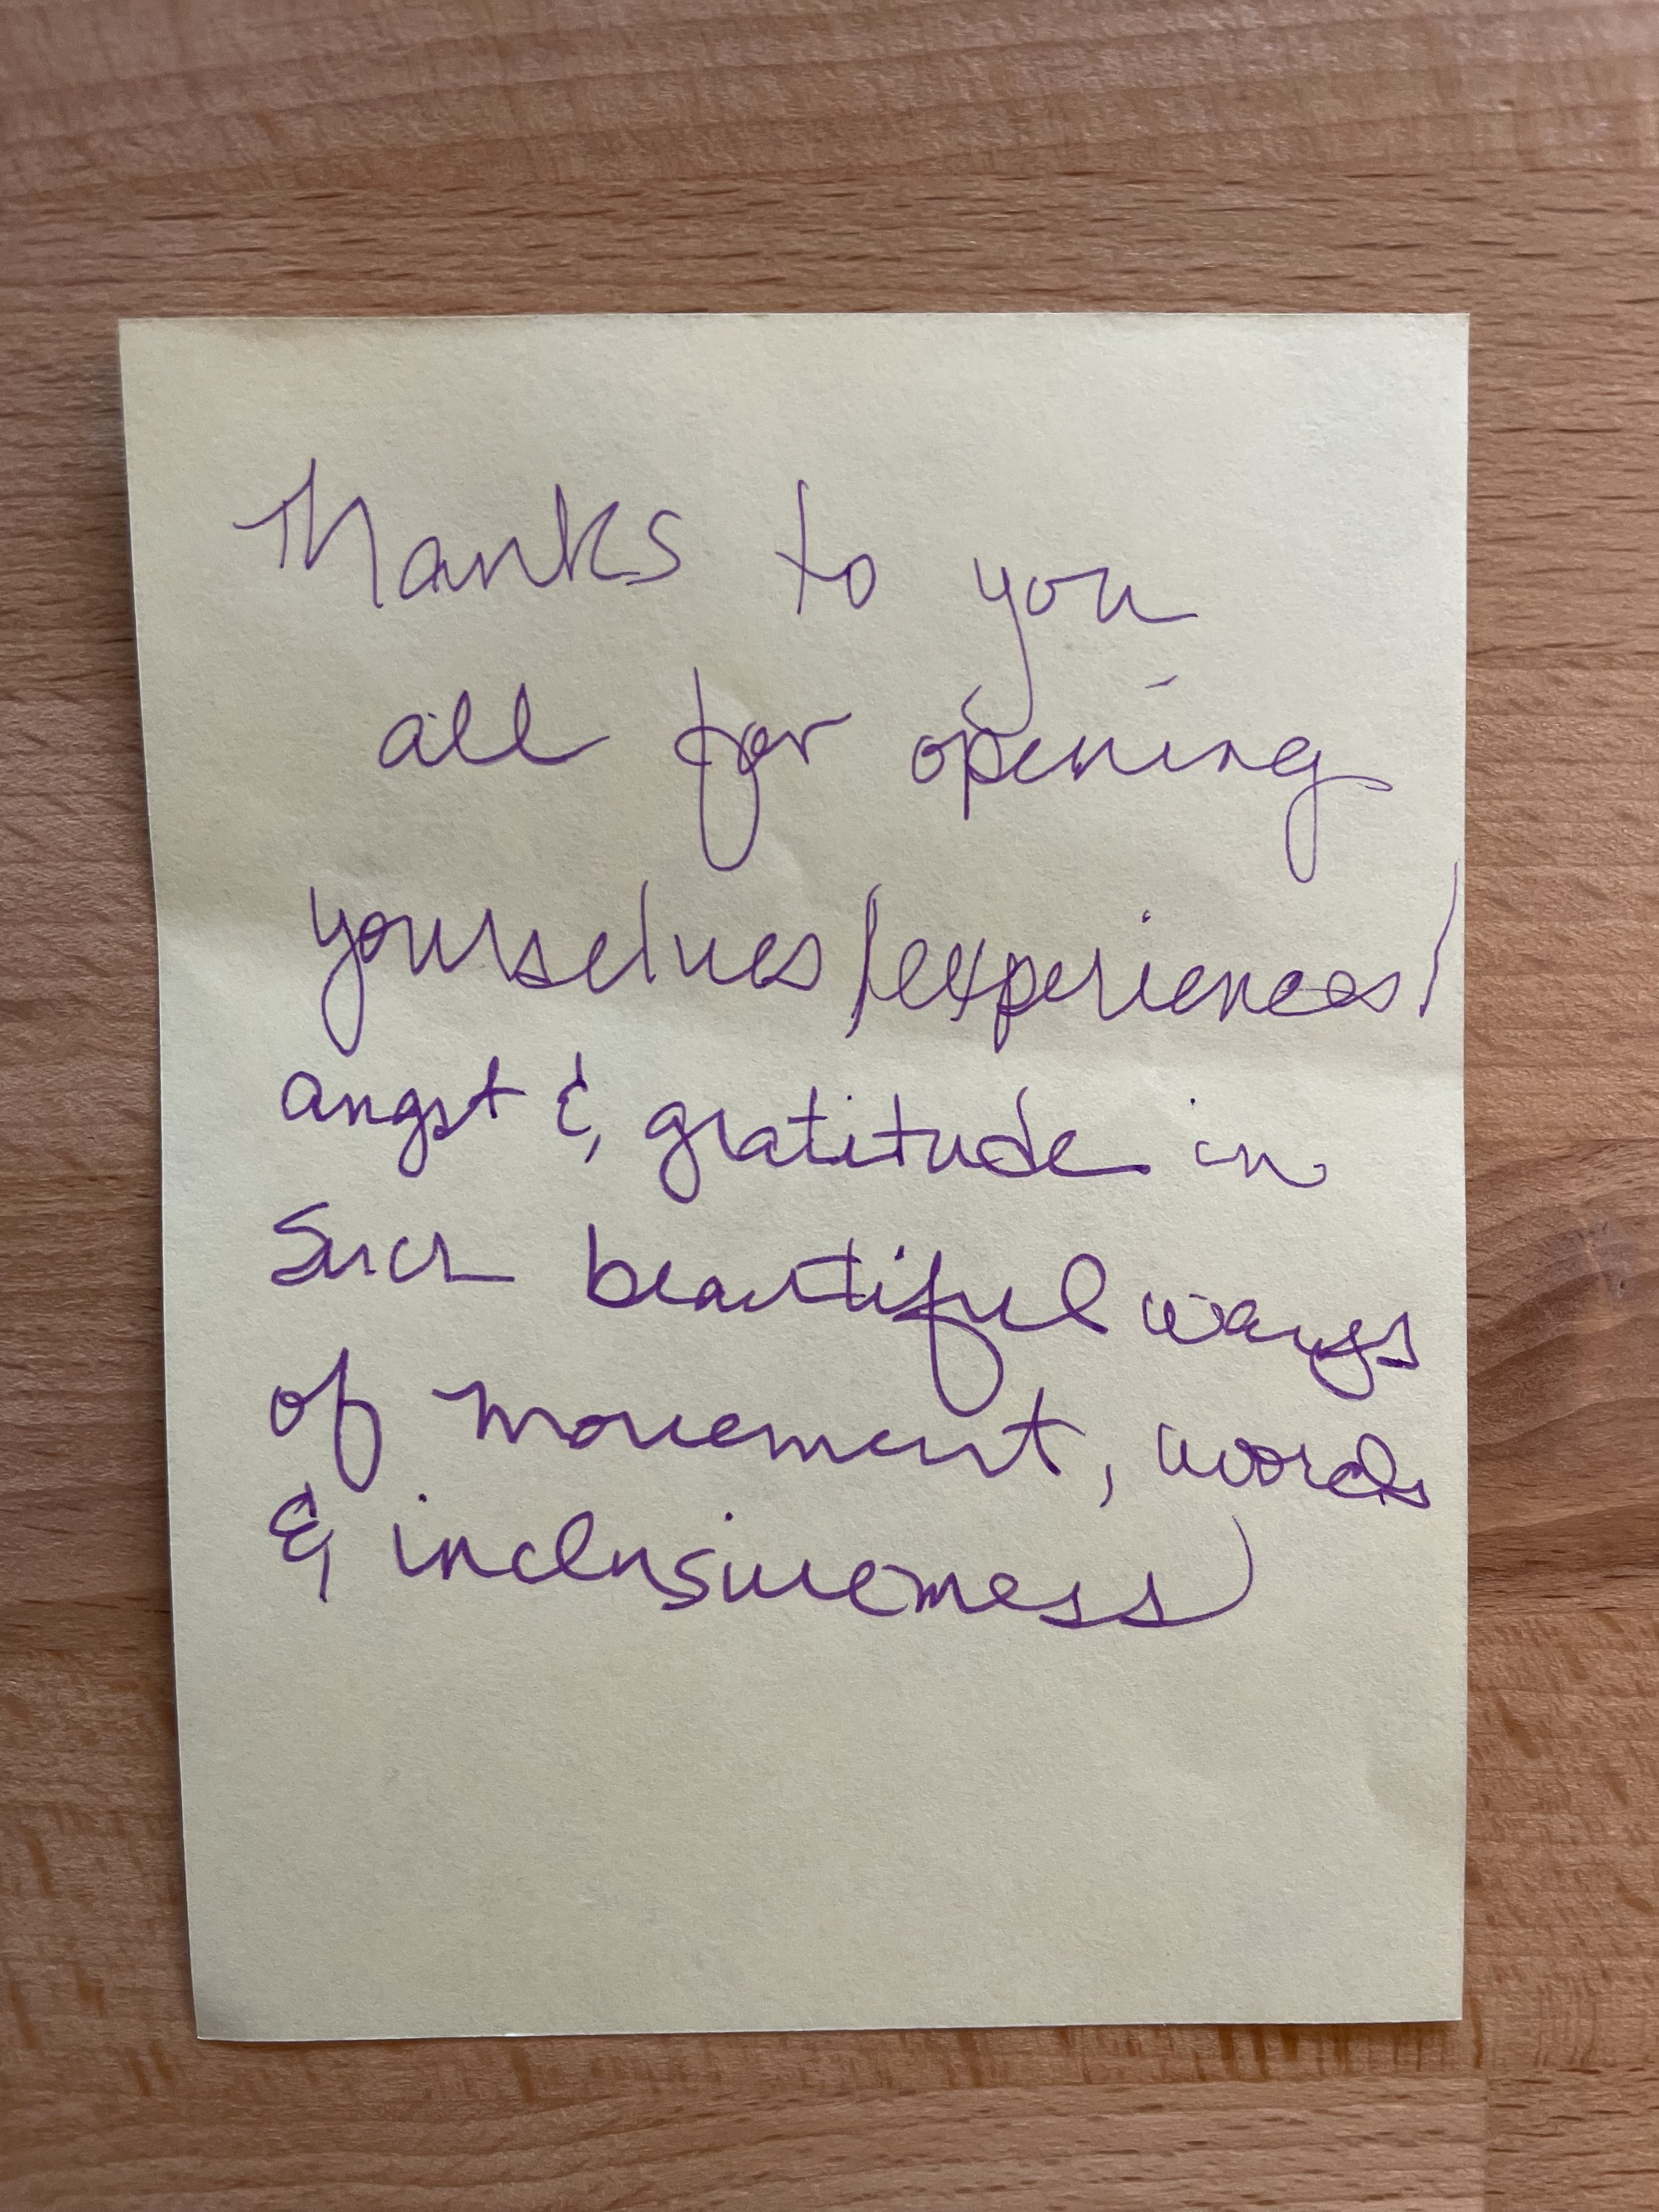 Thanks to you
all for opening
yourselves/experiences/
angst & gratitude in
such beautiful ways
of movement, words
& inclusiveness